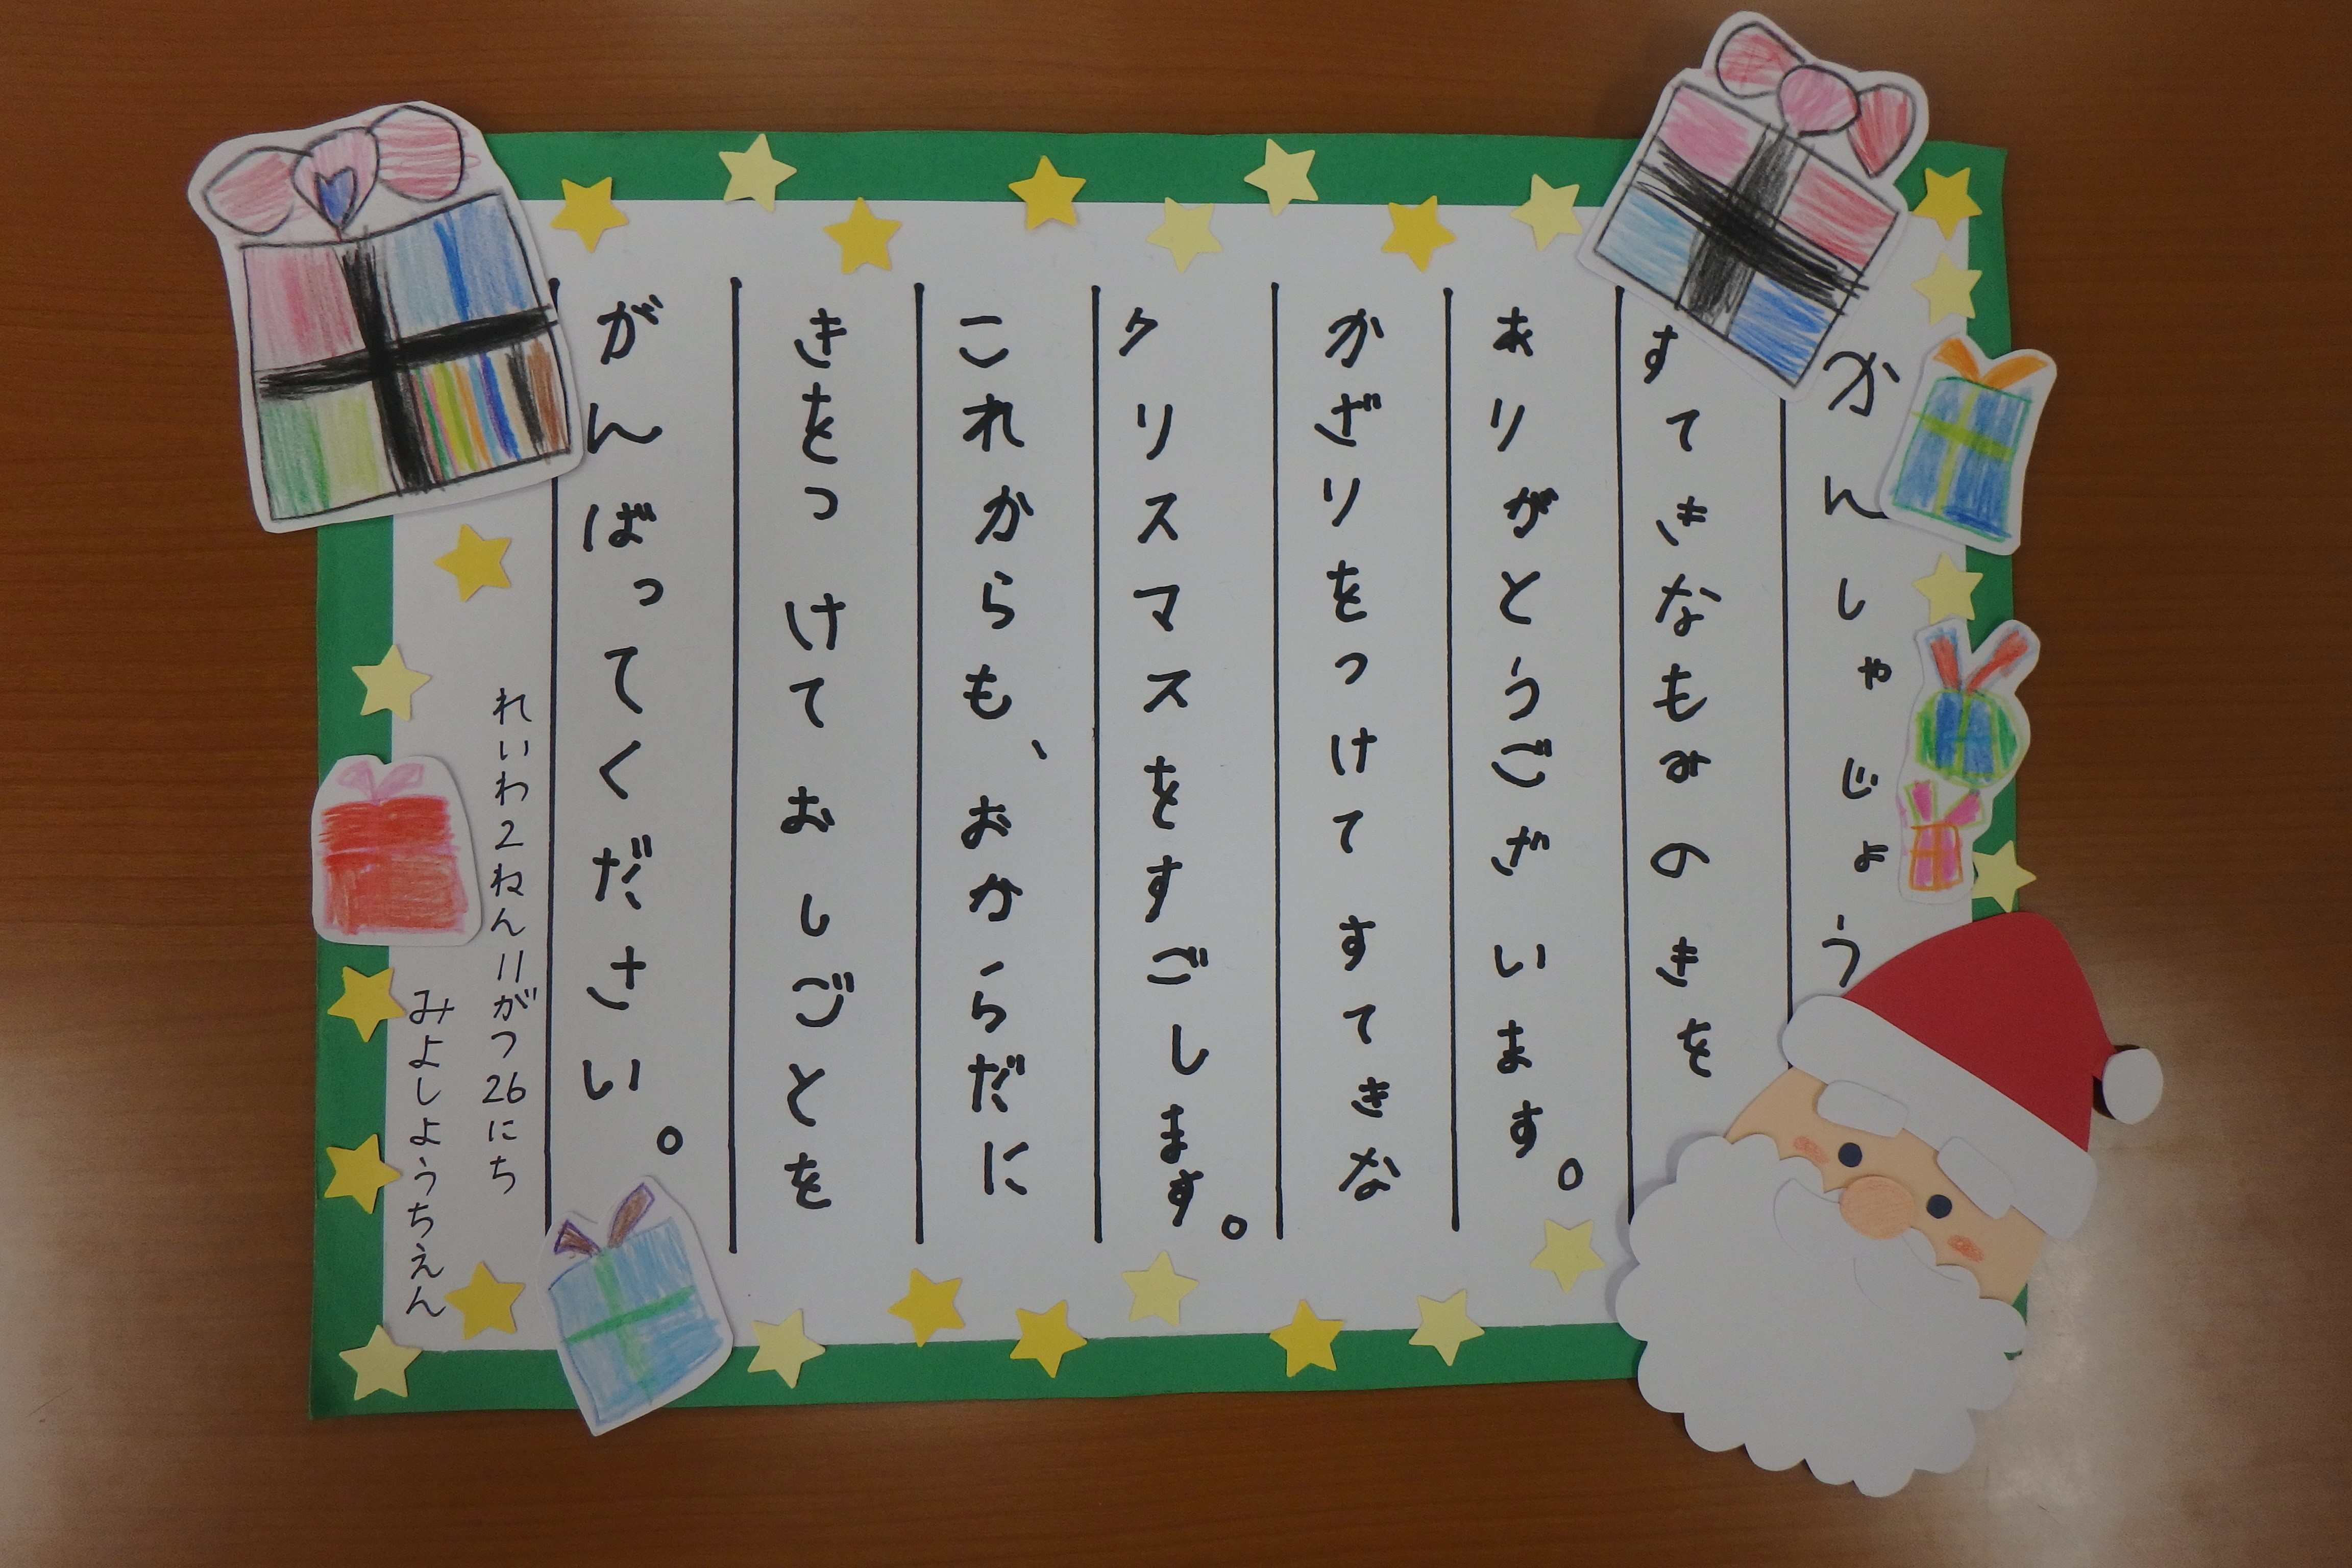 かんしゃじょう
すてきなもみのきを
ありがとうございます。
かざりをつけてすてきな
クリスマスをすごします。
これからも、おからだに
きをつけておしごとを
がんばってください。
れいわ2ねん11がつ26にち
みよしようちえん